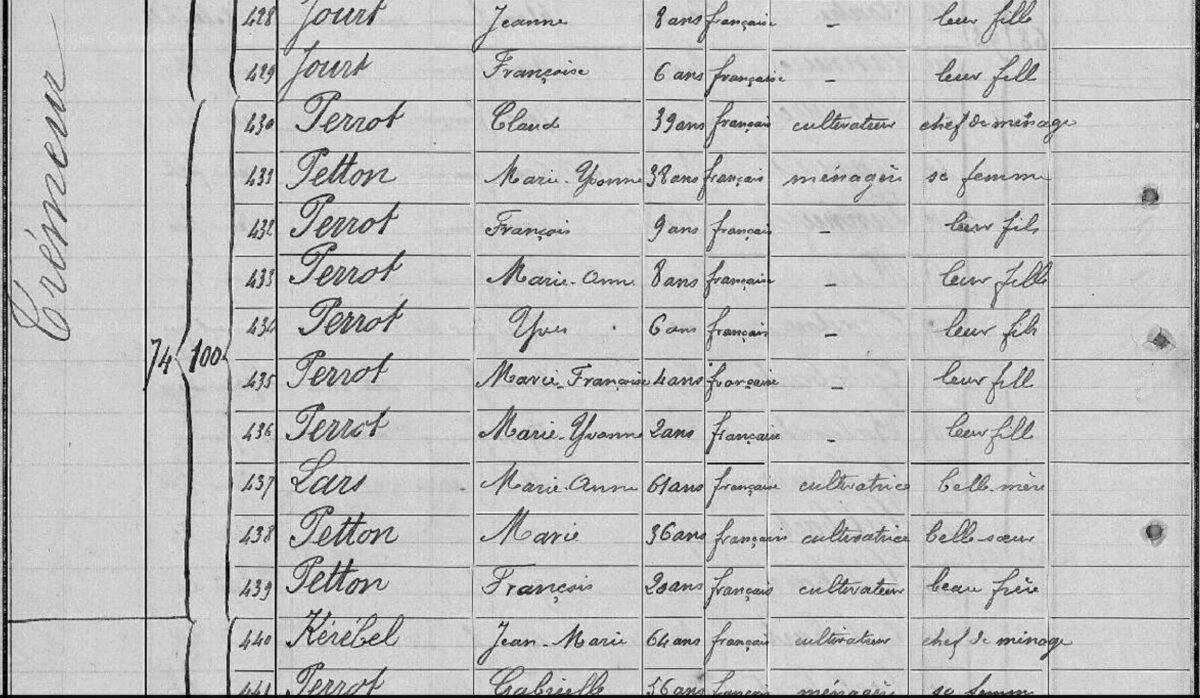 Trémeur
428 Jourt Jeanne 8 ans française - leur fille
429 Jourt Françoise 6 ans française - leur fill
74 100
430 Perrot Claud 39 ans français cultivateur chef de ménage
431 Petton Marie-Yvonne 38 ans français ménagère sa femme
432 Perrot François 9 ans français - leur fils
433 Perrot Marie-Anne 8 ans française - leur fille
434 Perrot Yves 6 ans française - leur fils
435 Perrot Marie-Françoise 4 ans française - leur fill
436 Perrot Marie-Yvonne 2 ans française - leur fill
437 Lars Marie-Anne 61 ans française cultivatrice belle-mère
438 Petton Marie 36 ans français cultivatrice belle-sœur
439 Petton François 20 ans français cultivateur beau frère
440 Kérébel Jean-Marie 64 ans français cultivateur chef de ménage
441 Perrot Gabrielle 56 ans français ménagère sa femme